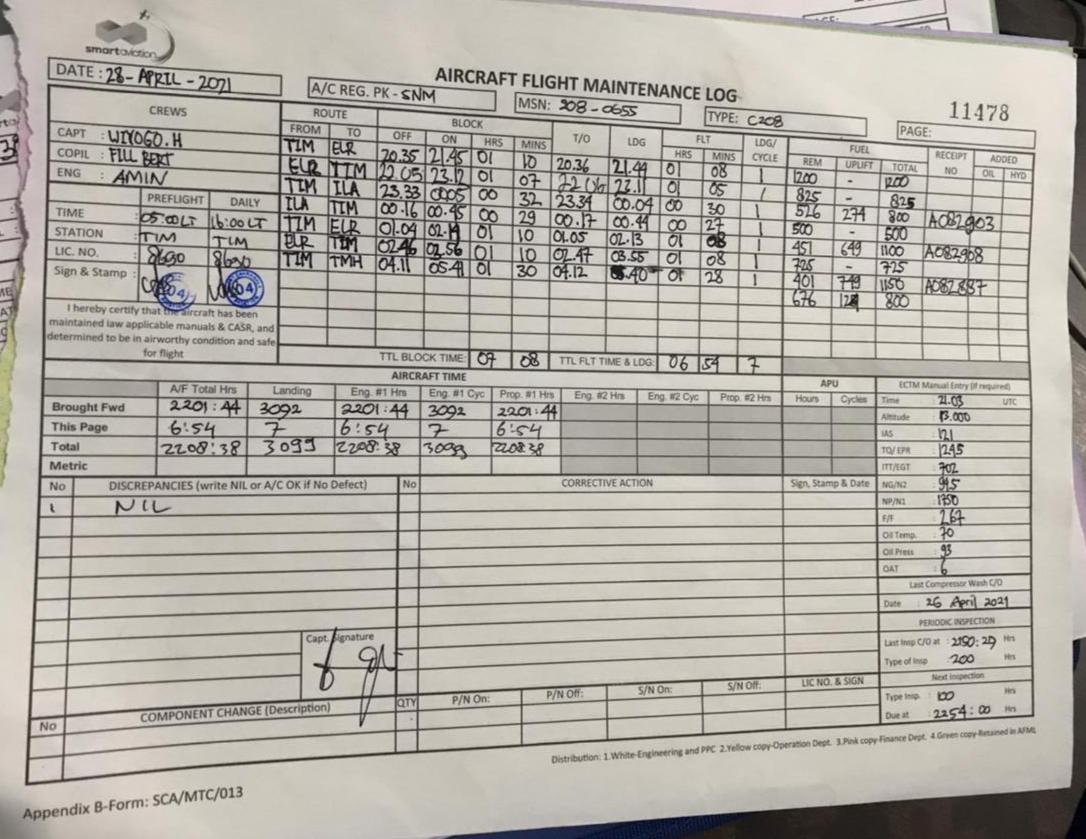 smartaviation
AIRCRAFT FLIGHT MAINTENANCE LOG
11478
DATE : 28 - APRIL - 2021
A/C REG. PK - SNM
MSN: 208 - 0655
TYPE: C208
PAGE:
CREWS
ROUTE BLOCK T/O LDG FLT LDG/ CYCLE FUEL RECEIPT NO ADDED
FROM TO OFF ON HRS MINS HRS MINS REM UPLIFT TOTAL OIL HYD
CAPT : WIYOGO.H
COPIL : FILL BERT
ENG : AMIN
TIM ELR 20.35 21.45 01 10 20.36 21.44 01 08 1 1200 - 1200
ELR TIM 22.05 23.12 01 07 22 06 23.11 01 05 1 825 - 825
TIM ILA 23.33 0005 00 32 2334 00.04 00 30 1 526 274 800 A082903
ILA TIM 00.16 00.45 00 29 00.17 00.44 00 27 1 500 - 500
TIM ELR 01.04 02.14 01 10 01.05 02.13 01 08 1 451 649 1100 A082908
ELR TIM 02.46 02.56 01 10 02.47 03.55 01 08 1 725 - 725
TIM TMH 04.11 05.41 01 30 04.12 05.40 01 28 1 401 749 1150 A082887
676 124 800
PREFLIGHT DAILY
TIME : 05:00 LT 16:00 LT
STATION : TIM TIM
LIC. NO. : 8690 8690
Sign & Stamp :
I hereby certify that the aircraft has been
maintained law applicable manuals & CASR, and
determined to be in airworthy condition and safe
for flight
TTL BLOCK TIME: 07 08 TTL FLT TIME & LDG: 06 54 7
AIRCRAFT TIME
A/F Total Hrs Landing Eng. #1 Hrs Eng. #1 Cyc Prop. #1 Hrs Eng. #2 Hrs Eng. #2 Cyc Prop. #2 Hrs
APU
Hours Cycles
Brought Fwd 2201:44 3092 2201:44 3092 2201:44
This Page 6:54 7 6:54 7 6:54
Total 2208:38 3099 2208:38 3099 2208:38
Metric
ECTM Manual Entry (if required)
Time : 21.03 UTC
Altitude : 13.000
IAS : 121
TQ/ EPR : 1245
ITT/EGT : 702
NG/N2 :
NP/N1 : 1750
F/F : 267
Oil Temp. : 70
Oil Press : 93
OAT : 6
Last Compressor Wash C/O
Date : 26 April 2021
PERIODIC INSPECTION
Last Insp C/O at : 2150:29 Hrs
Type of Insp : 200 Hrs
Next Inspection
Type Insp. : 100 Hrs
Due at : 2254:00 Hrs
No DISCREPANCIES (write NIL or A/C OK if No Defect) No CORRECTIVE ACTION Sign, Stamp & Date
1 NIL
Capt. Signature
No COMPONENT CHANGE (Description) QTY P/N On: P/N Off: S/N On: S/N Off: LIC NO. & SIGN
Distribution: 1.White-Engineering and PPC 2.Yellow copy-Operation Dept. 3.Pink copy-Finance Dept. 4.Green copy-Retained in AFML
Appendix B-Form: SCA/MTC/013